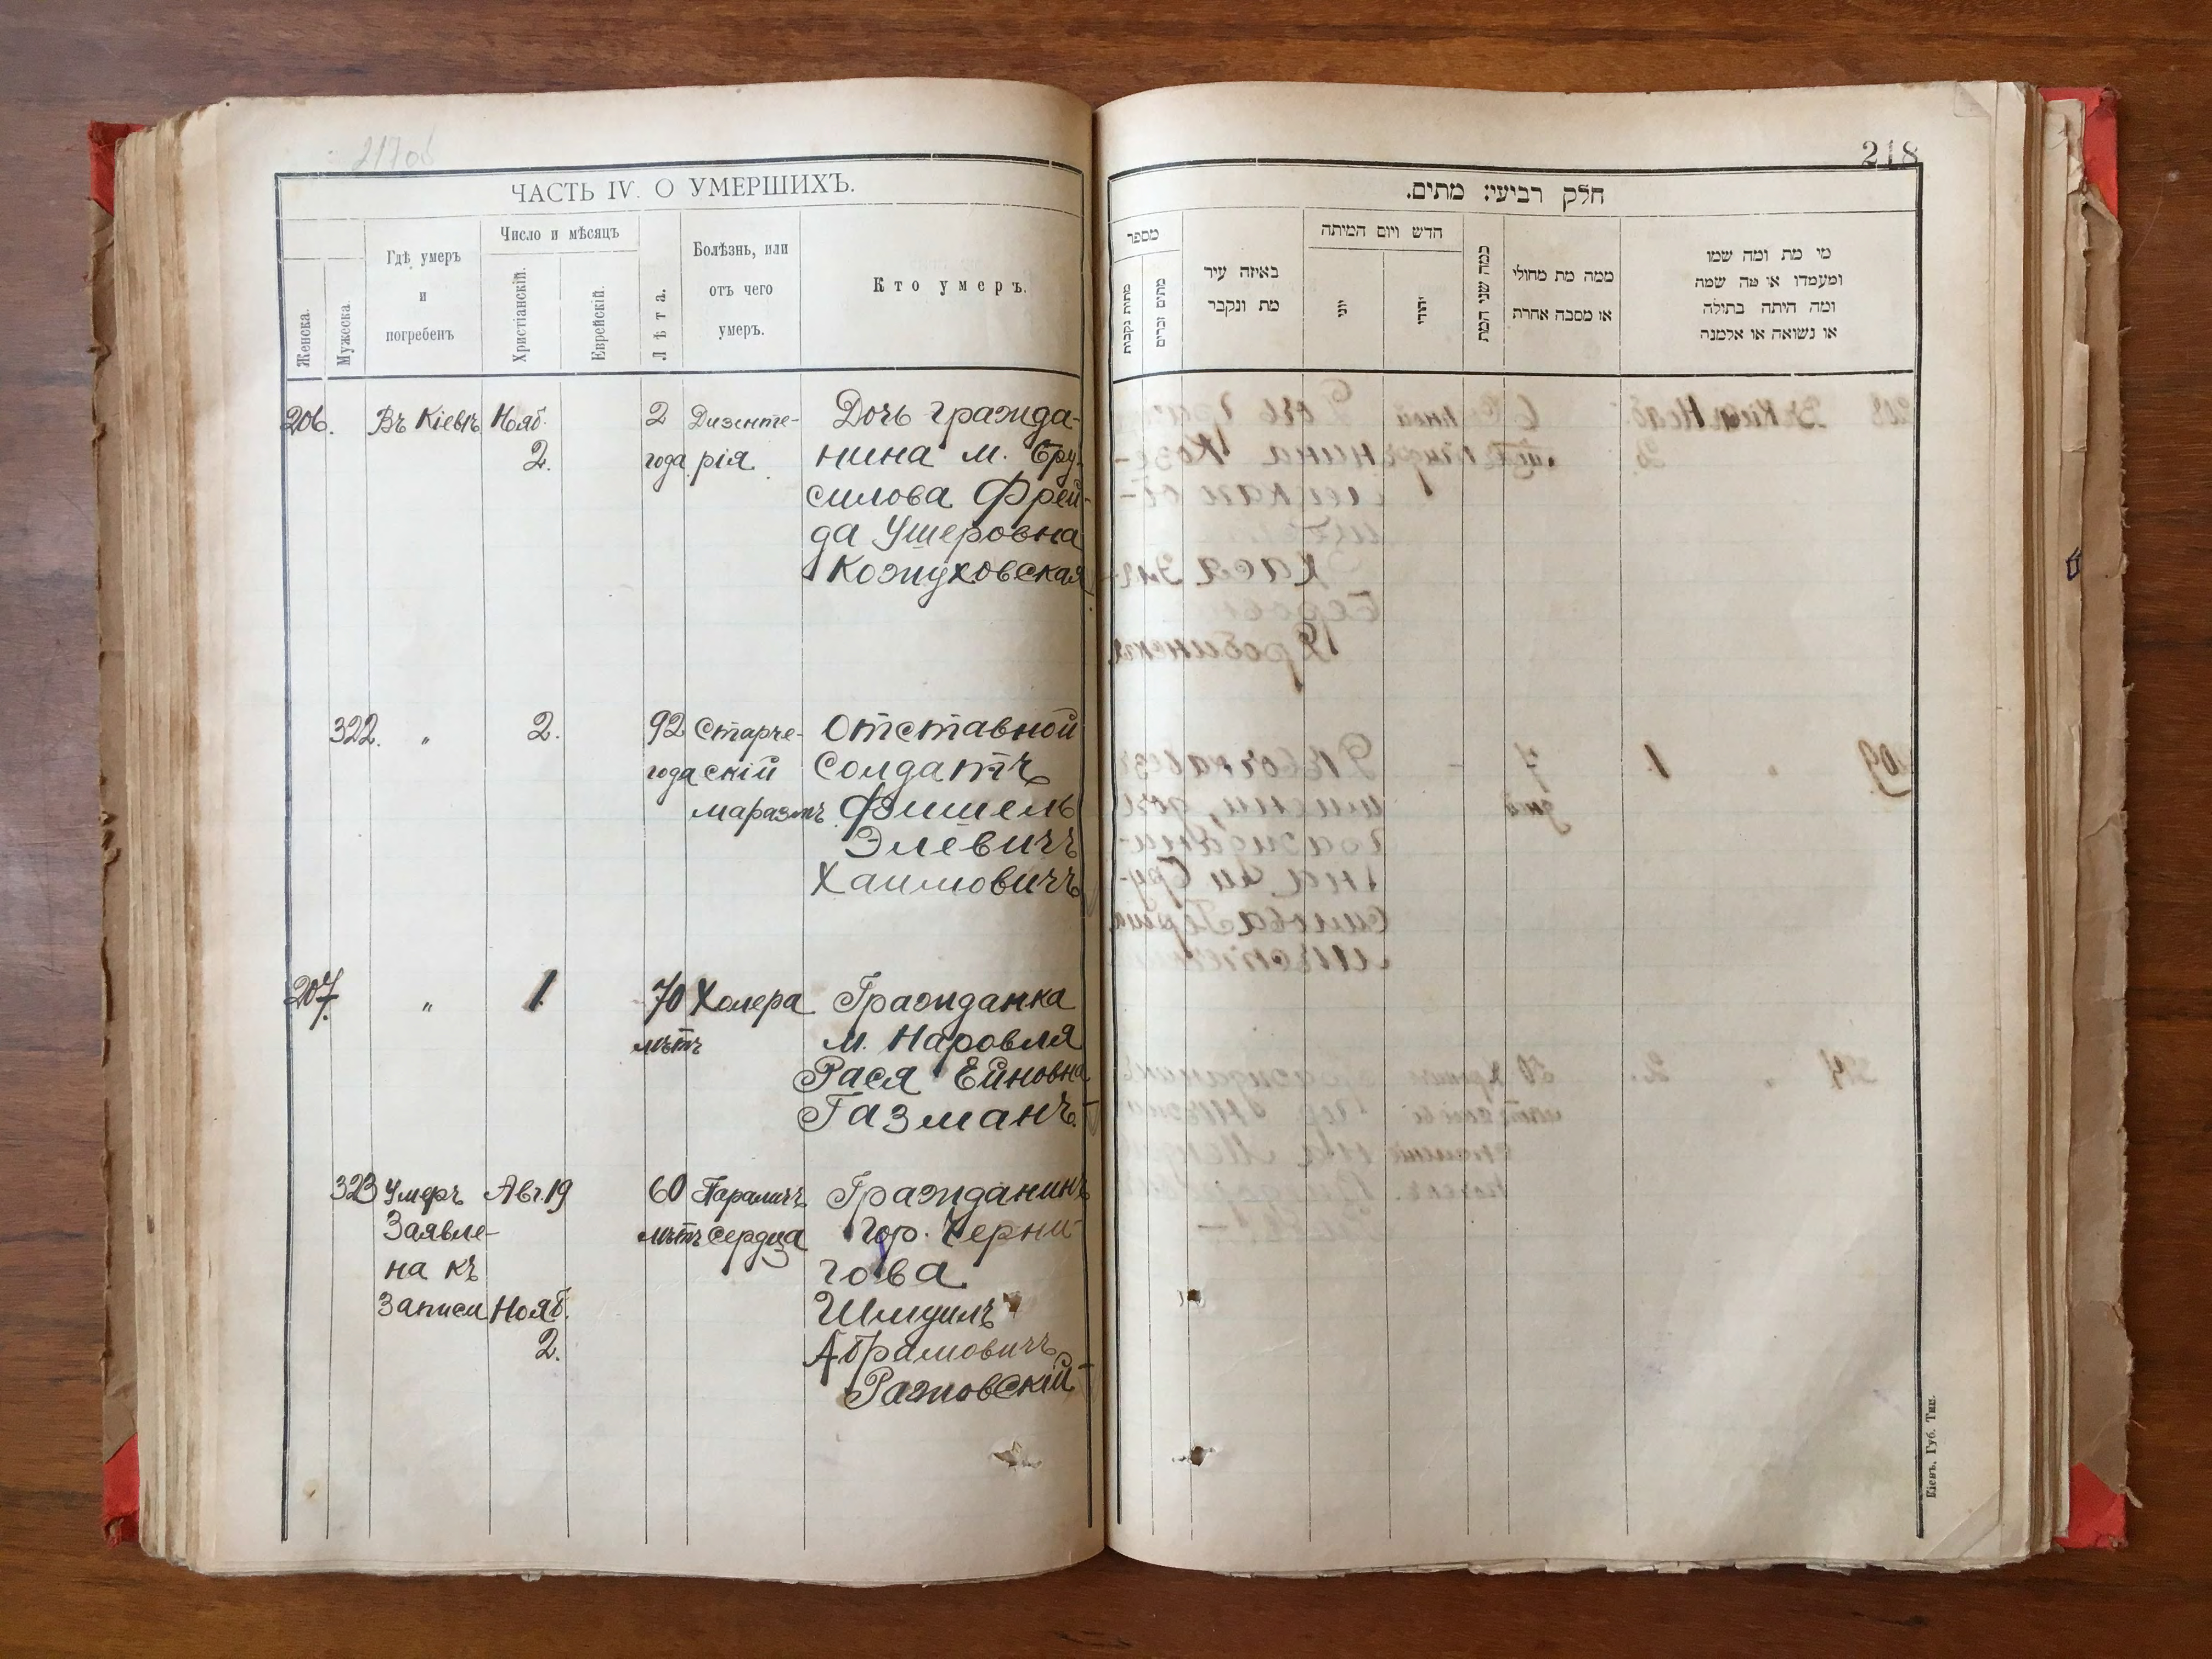 217об
ЧАСТЬ IV. О УМЕРШИХЪ.
Женска.
Мужеска.
Гдѣ умеръ
и
погребенъ
Число и мѣсяцъ
Христіанскій.
Еврейскій.
Лѣта.
Болѣзнь, или
отъ чего
умеръ.
Кто умеръ.
206. Въ Кіевѣ Нояб. 2 Дизенте- Дочь гражда-
2. года рія нина м. Бру-
силова Фрей-
да Ушеровна
Кожуховская
322. „ 2. 92 Старче- Отставной
года скій Солдатъ
маразмъ Фишель
Элевичъ
Хаимовичъ
207. „ 1. 70 Холера Гражданка
лѣтъ м. Наровля
Рася Ейновна
Газманъ.
323 Умеръ Авг. 19 60 Параличъ Гражданинъ
Заявле- лѣтъ сердца гор. Черни-
на къ гова
Записи Нояб. Шмуилъ
2. Абрамовичъ
Ражовскій
218
חלק רביעי: מתים.
מספר
מתות נקבות
מתים זכרים
באיזה עיר
מת ונקבר
חדש ויום המיתה
יוני
יהודי
כמה שני המת
ממה מת מחולי
או מסבה אחרת
מי מת ומה שמו
ומעמדו או מה שמה
ומה היתה בתולה
או נשואה או אלמנה
Кіевъ, Губ. Тип.